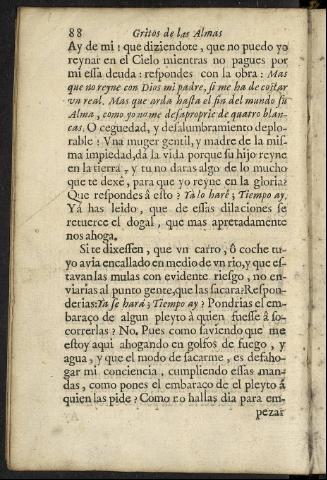 88 Gritos de las Almas
Ay de mi! que diziendote, que no puedo yo
reynar en el Cielo mientras no pagues por
mi essa deuda: respondes con la obra: Mas
que no reyne con Dios mi padre, si me ha de costar
vn real. Mas que arda hasta el fin del mundo su
Alma, como yo no me desaproprie de quatro blan-
cas. O ceguedad, y desalumbramiento deplo-
rable! Vna muger gentil, y madre de la mis-
ma impiedad, dà la vida porque su hijo reyne
en la tierra, y tu no daràs algo de lo mucho
que te dexè, para que yo reyne en la gloria?
Que respondes à esto? Yà lo harè; Tiempo ay.
Yà has leìdo, que de essas dilaciones se
retuerce el dogal, que mas apretadamente
nos ahoga.
Si te dixessen, que vn carro, ò coche tu-
yo avia encallado en medio de vn rio, y que es-
tavan las mulas con evidente riesgo, no en-
viarias al punto gente, que las sacara? Respon-
derias: Ya se harà; Tiempo ay? Pondrias el em-
baraço de algun pleyto à quien fuesse à so-
correrlas? No. Pues como saviendo que me
estoy aqui ahogando en golfos de fuego, y
agua, y que el modo de sacarme, es desaho-
gar mi conciencia, cumpliendo essas man-
das, como pones el embaraço de el pleyto à
quien las pide? Como no hallas dia para em-
pezar